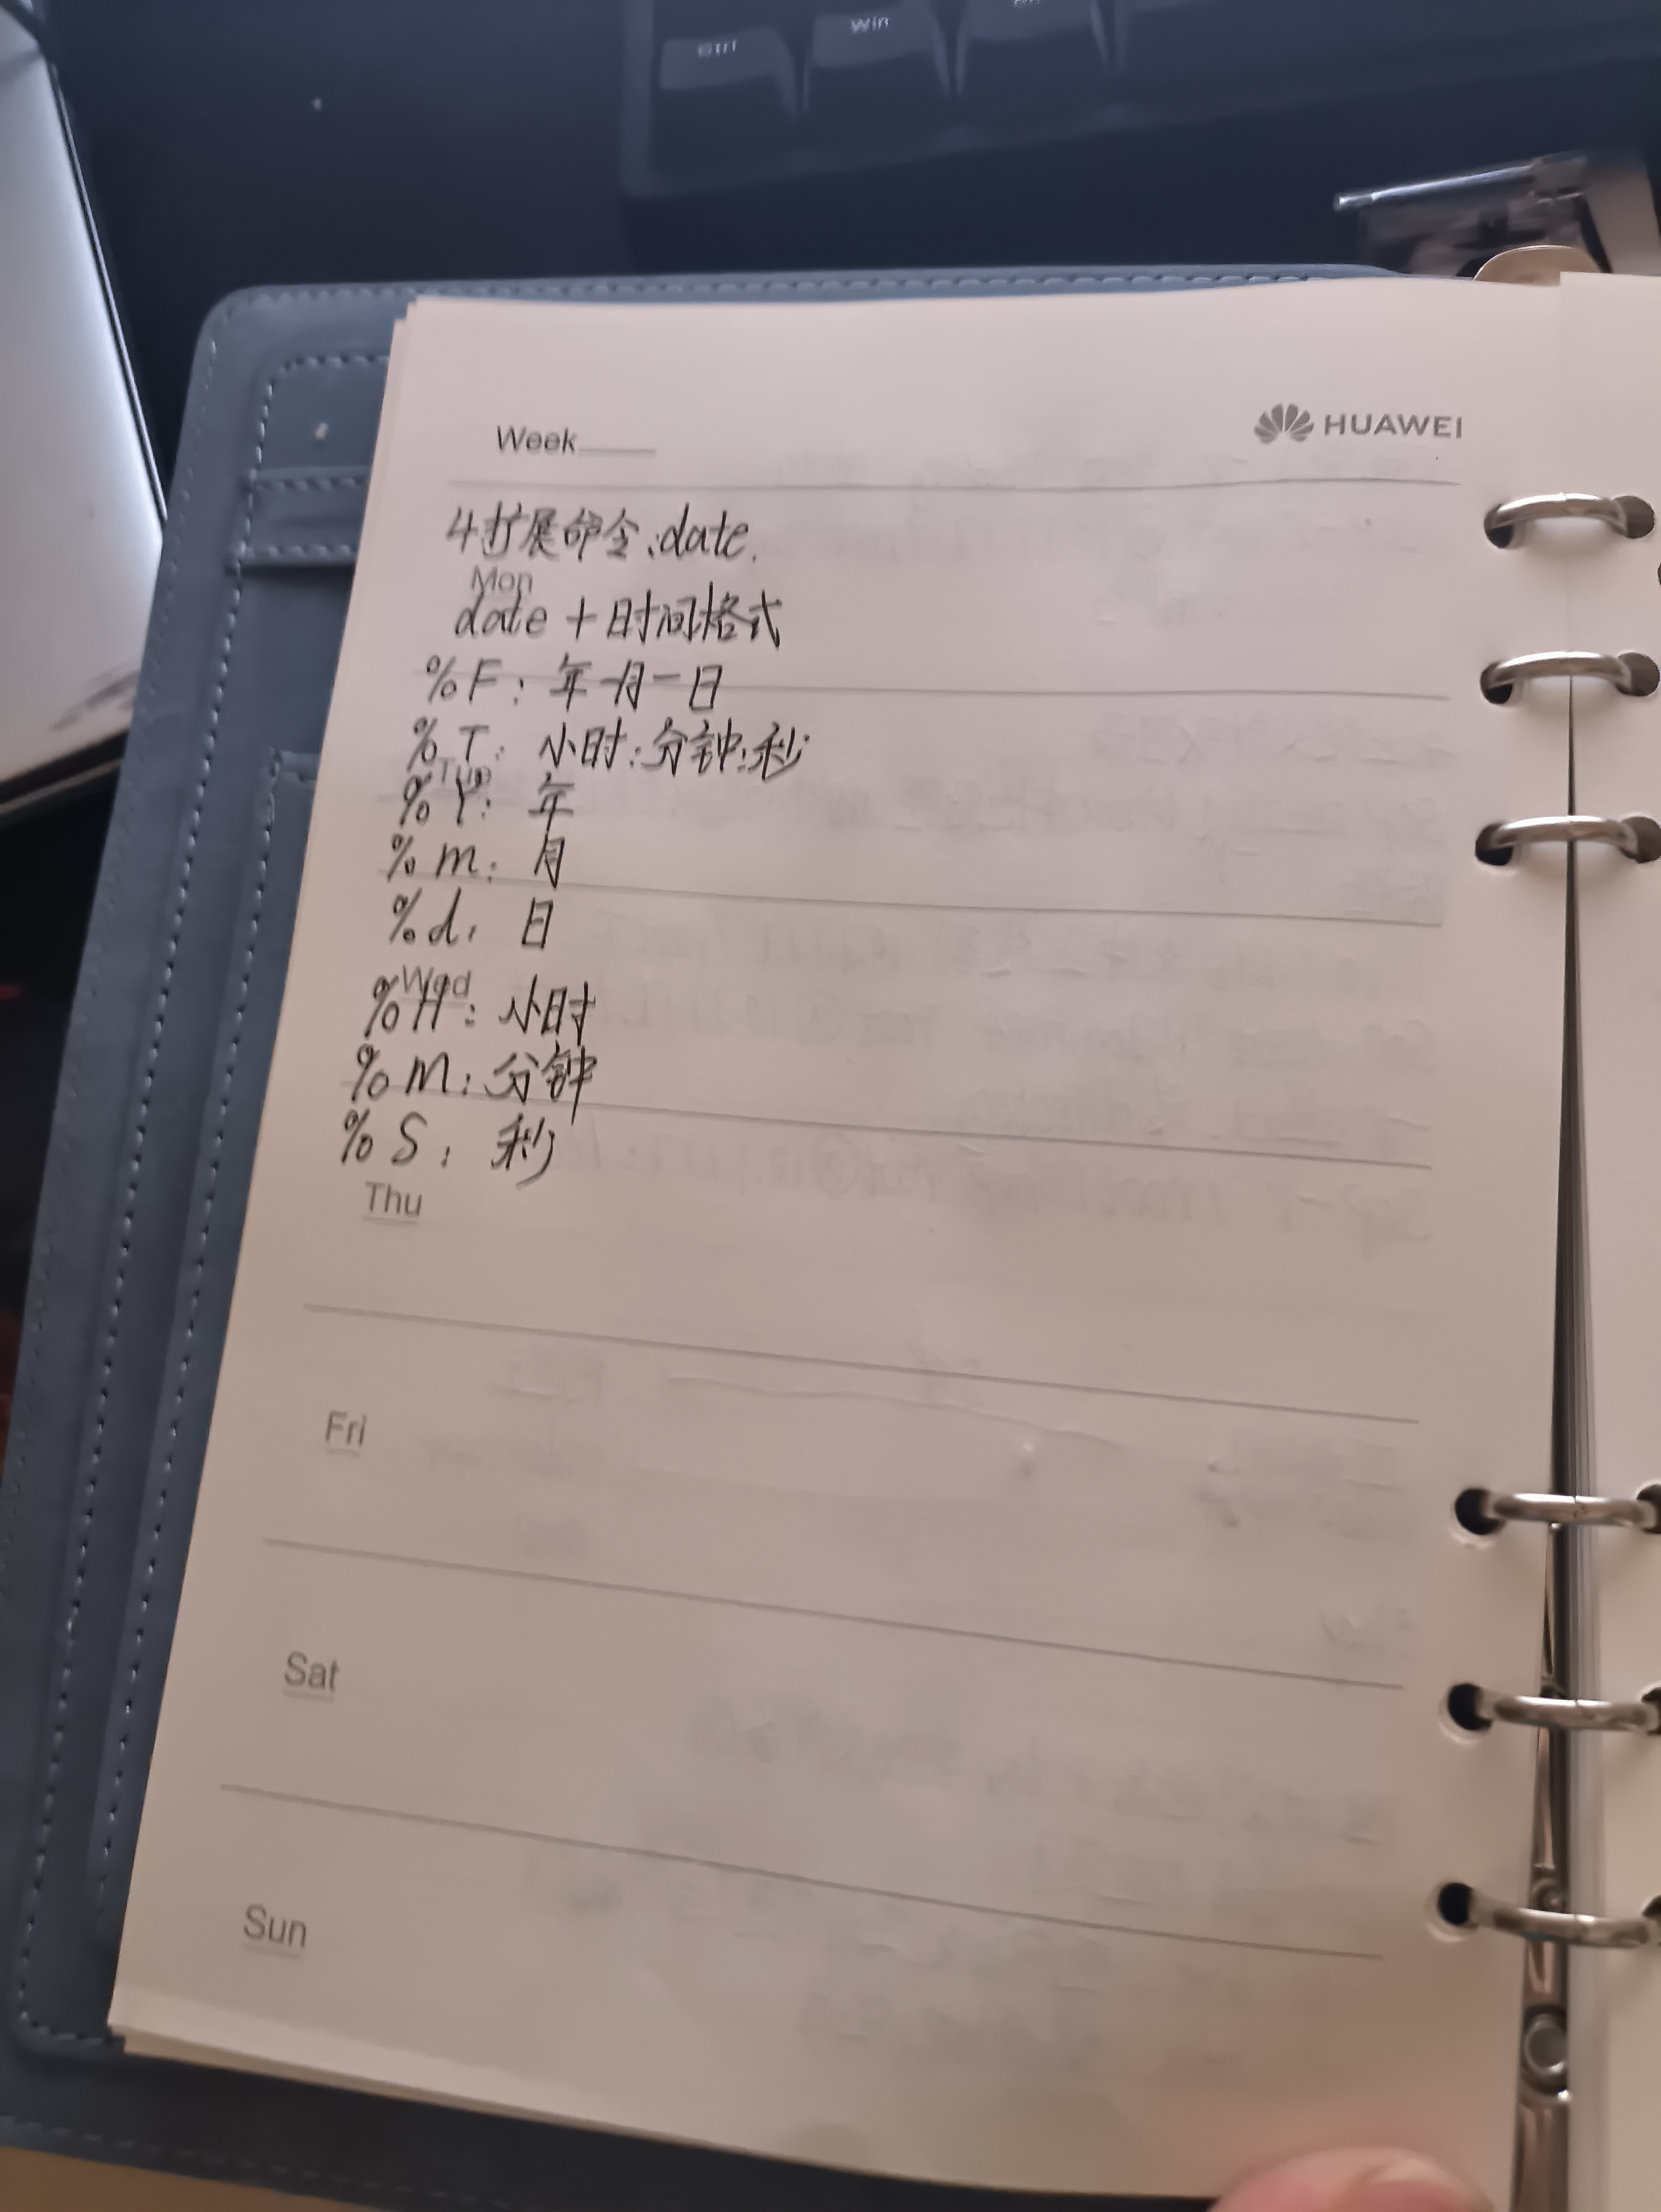 Ctrl
Win
Week
HUAWEI
4扩展命令:date.
Mon
date +时间格式
%F: 年-月-日
%T: 小时:分钟:秒
Tue
%Y: 年
%m: 月
%d: 日
Wed
%H: 小时
%M: 分钟
%S: 秒
Thu
Fri
Sat
Sun